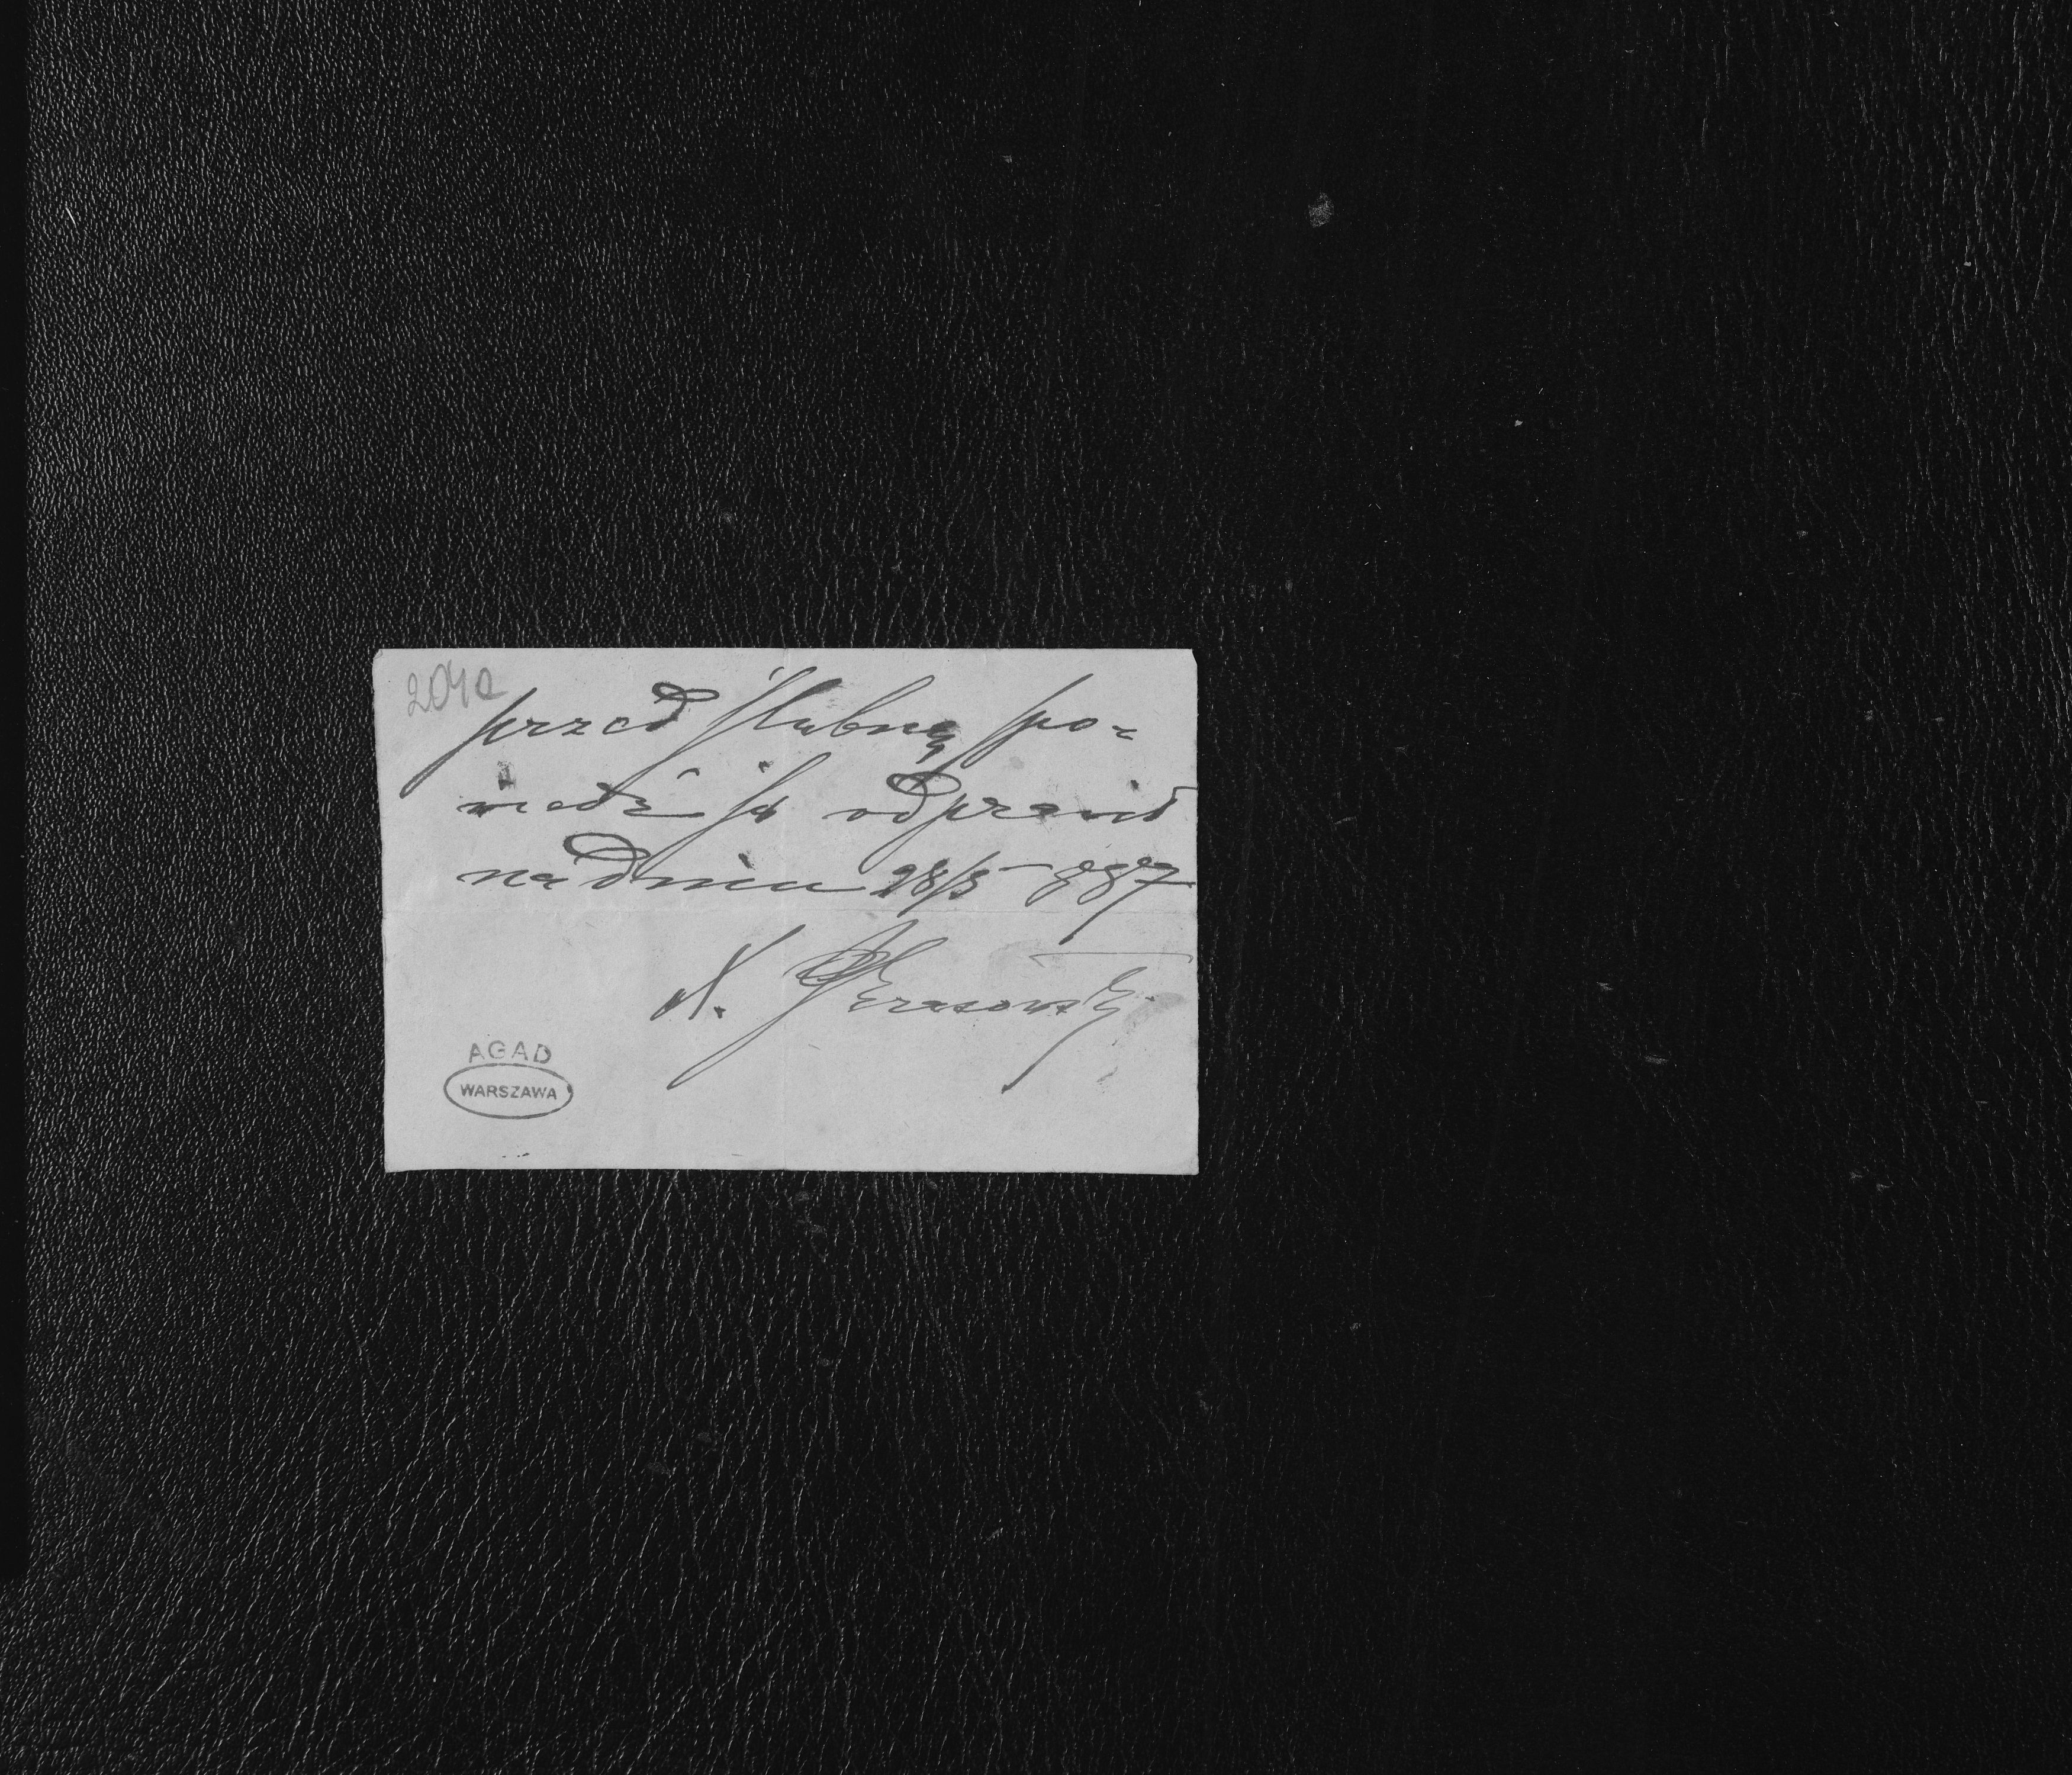 204a
przedślubną spo-
wiedź św. odprawił
na dniu 28/3 887
X.
AGAD
WARSZAWA